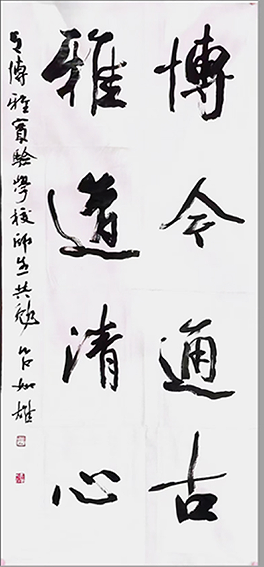 博今通古
雅道清心
与博雅實驗學校師生共勉 吕如雄